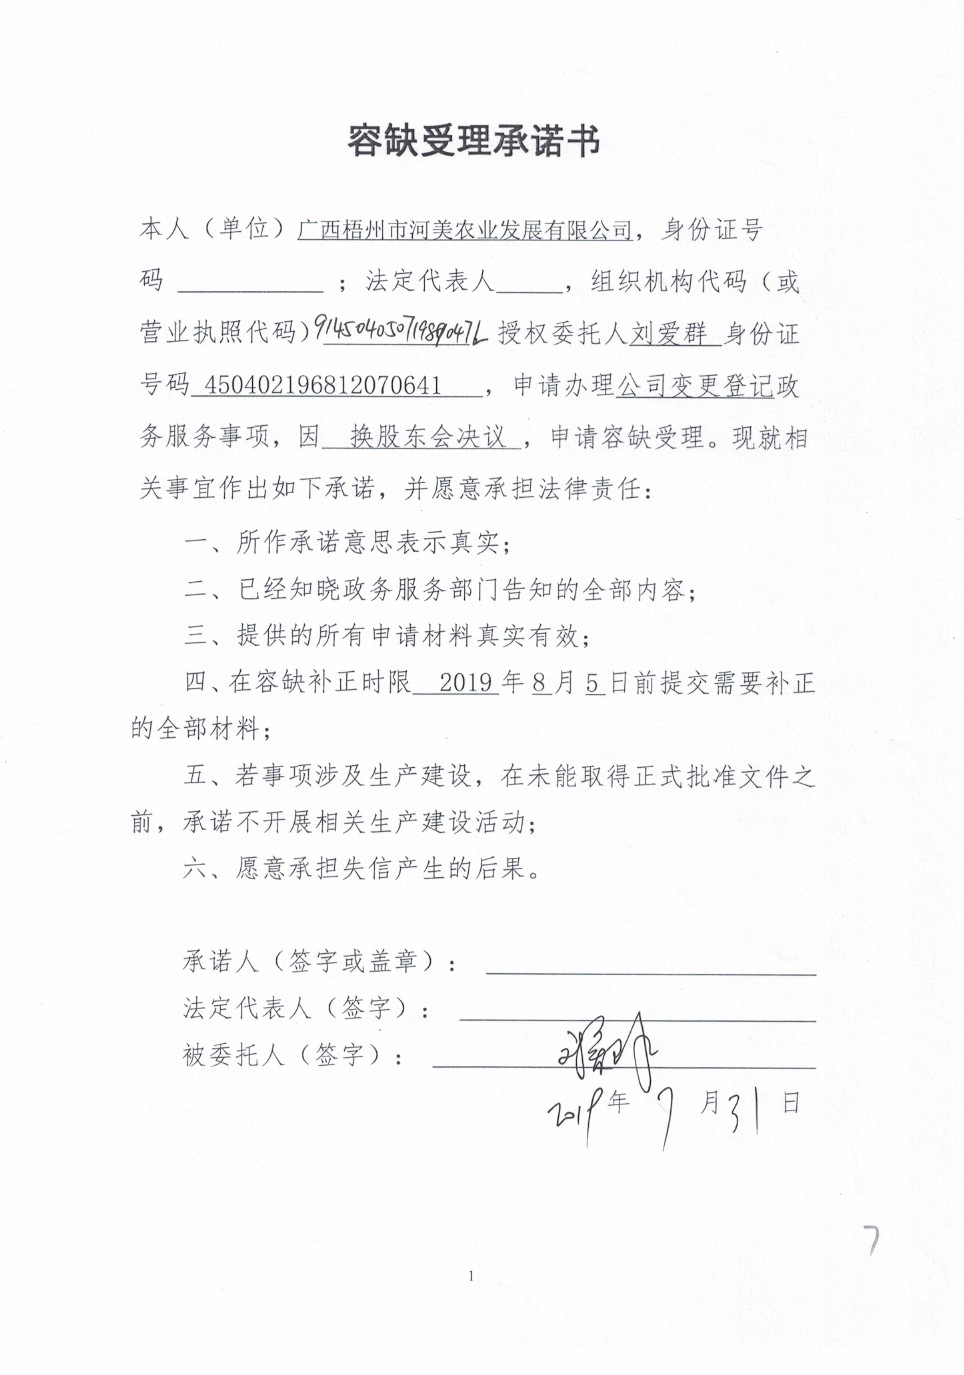 容缺受理承诺书
本人（单位）广西梧州市河美农业发展有限公司，身份证号
码 ；法定代表人 ，组织机构代码（或
营业执照代码） 授权委托人刘爱群 身份证
号码 450402196812070641 ，申请办理公司变更登记政
务服务事项，因 换股东会决议 ，申请容缺受理。现就相
关事宜作出如下承诺，并愿意承担法律责任：
一、所作承诺意思表示真实；
二、已经知晓政务服务部门告知的全部内容；
三、提供的所有申请材料真实有效；
四、在容缺补正时限 2019 年 8 月 5 日前提交需要补正
的全部材料；
五、若事项涉及生产建设，在未能取得正式批准文件之
前，承诺不开展相关生产建设活动；
六、愿意承担失信产生的后果。
承诺人（签字或盖章）：
法定代表人（签字）：
被委托人（签字）：
2019 年 7 月 31 日
7
1